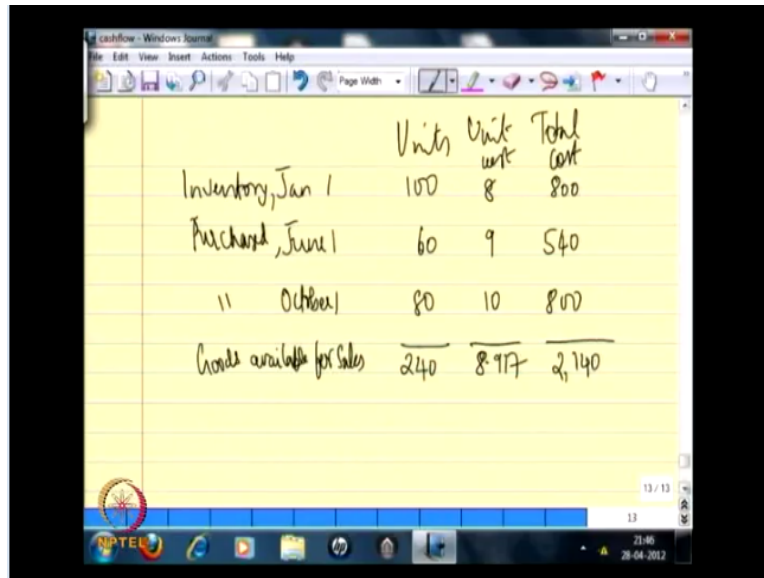 cashflow - Windows Journal
File Edit View Insert Actions Tools Help
Page Width
Units Unit cost Total cost
Inventory, Jan 1 100 8 800
Purchased, June 1 60 9 540
" October 1 80 10 800
Goods available for Sales 240 8.917 2,140
13 / 13
13
NPTEL
hp
A
21:46
28-04-2012